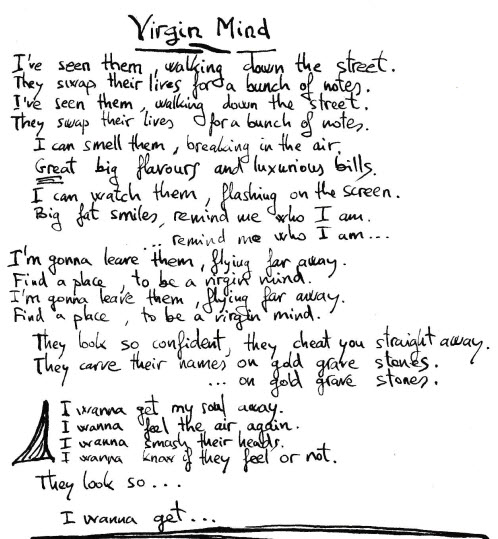 Virgin Mind
I've seen them, walking down the street.
They swap their lives for a bunch of notes.
I've seen them, walking down the street.
They swap their lives for a bunch of notes.
I can smell them, breaking in the air.
Great big flavours and luxurious bills.
I can watch them, flashing on the screen.
Big fat smiles, remind me who I am.
... remind me who I am...
I'm gonna leave them, flying far away.
Find a place, to be a virgin mind.
I'm gonna leave them, flying far away.
Find a place, to be a virgin mind.
They look so confident, they cheat you straight away.
They carve their names on gold grave stones.
... on gold grave stones.
I wanna get my soul away.
I wanna feel the air, again.
I wanna smash their heads.
I wanna know if they feel or not.
They look so...
I wanna get...